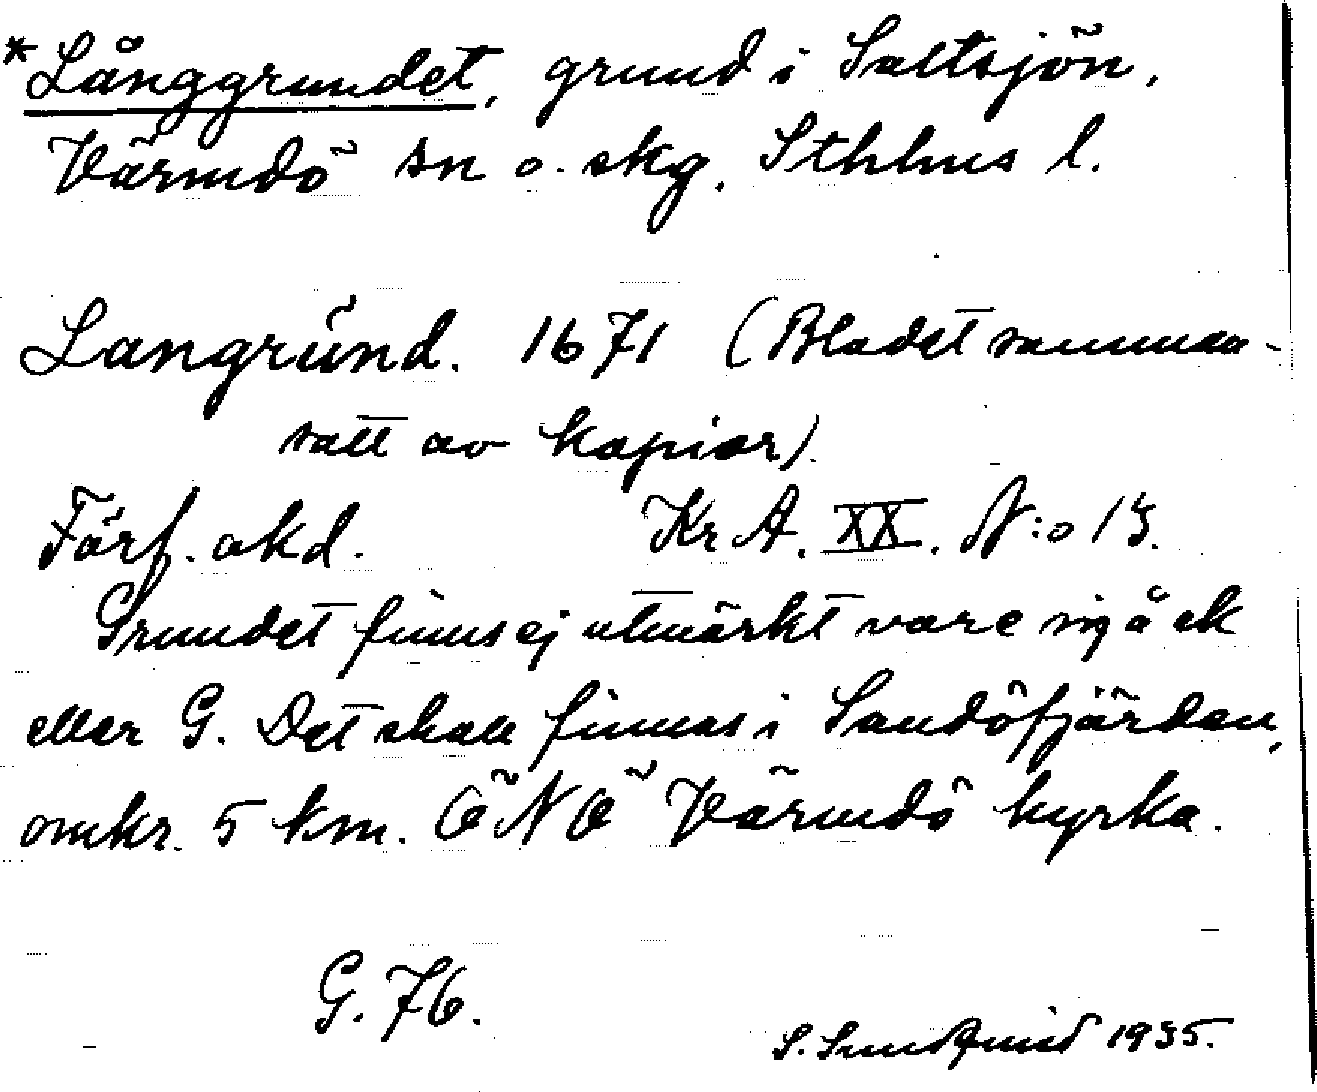 *Långgrundet, grund i Saltsjön,
Värmdö sn o. skg, Sthlms l.
Langrŭnd. 1671 (Bladet samman-
satt av kopior).
Förf. okd. Kr A. XX. N:o 13.
Grundet finns ej utmärkt vare sig å ek
eller G. Det skall finnas i Sandöfjärden,
omkr. 5 km. ÖNÖ Värmdö kyrka.
G. 76.
S. Sundquist 1935.